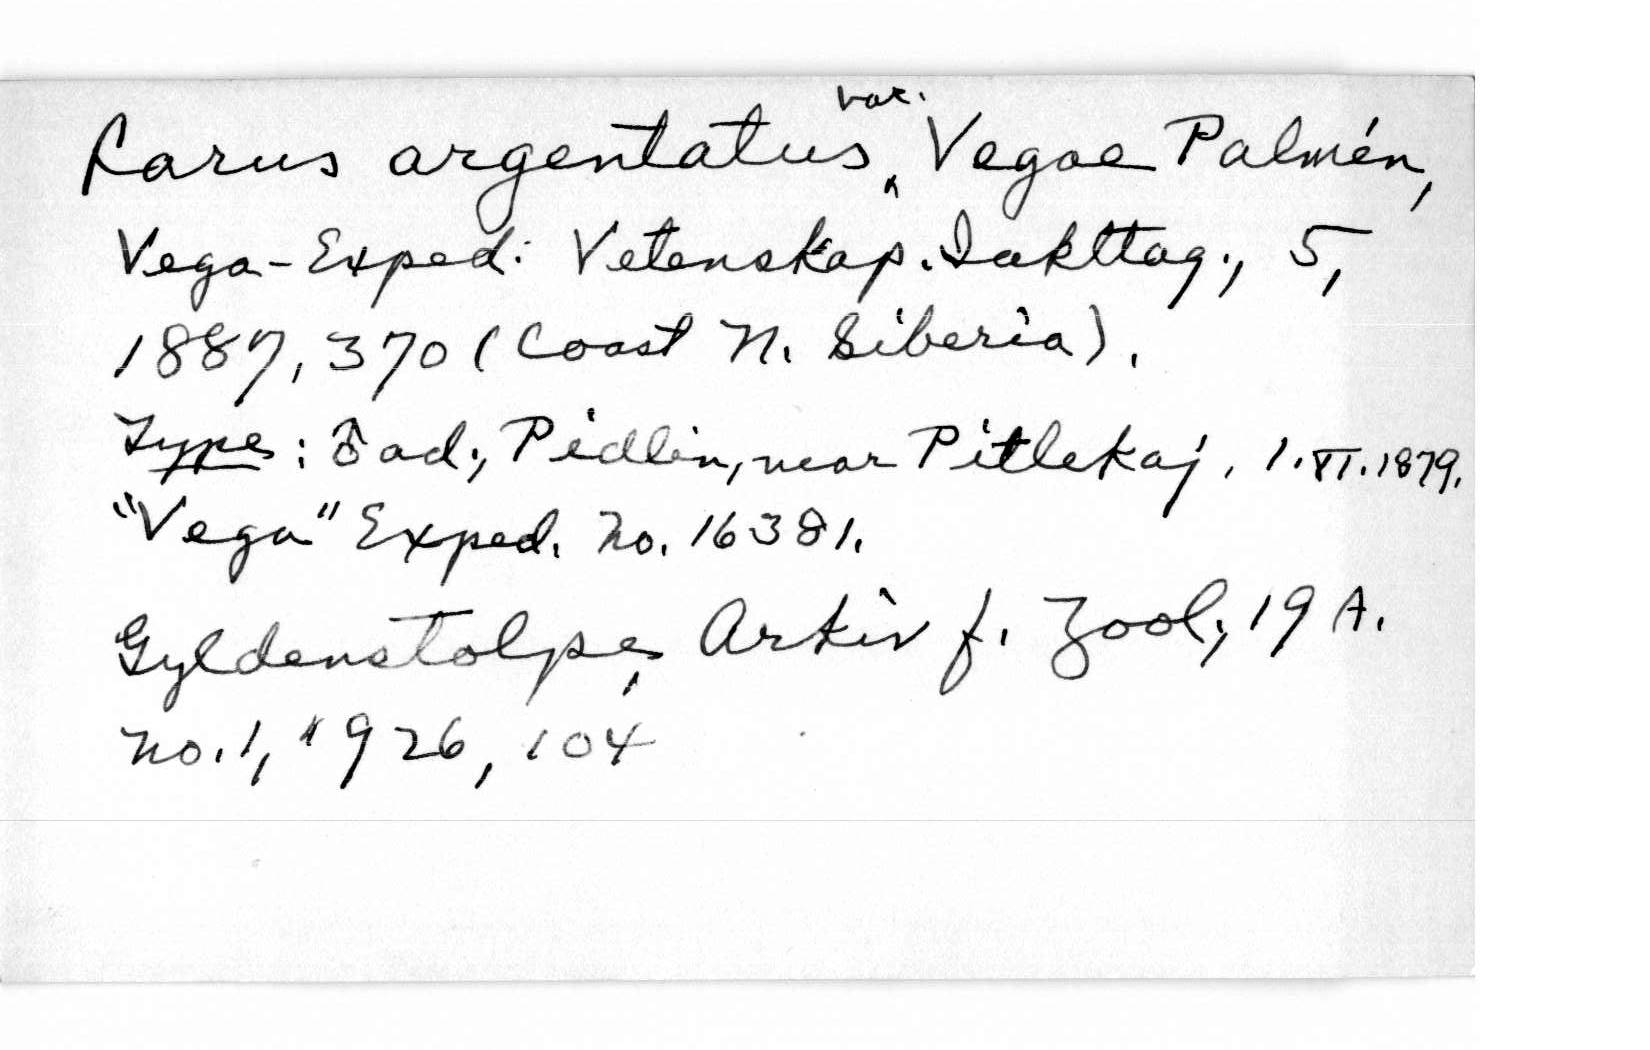 Larus argentatus var. Vegae Palmén,
Vega-Exped: Vetenskap. Iakttag., 5,
1887, 370 (Coast N. Siberia).
Type: ♂ ad., Pidlin, near Pitlekaj, 1.VI.1879.
"Vega" Exped. no. 16381.
Gyldenstolpe, Arkiv f. Zool., 19 A.
no. 1, 1926, 104